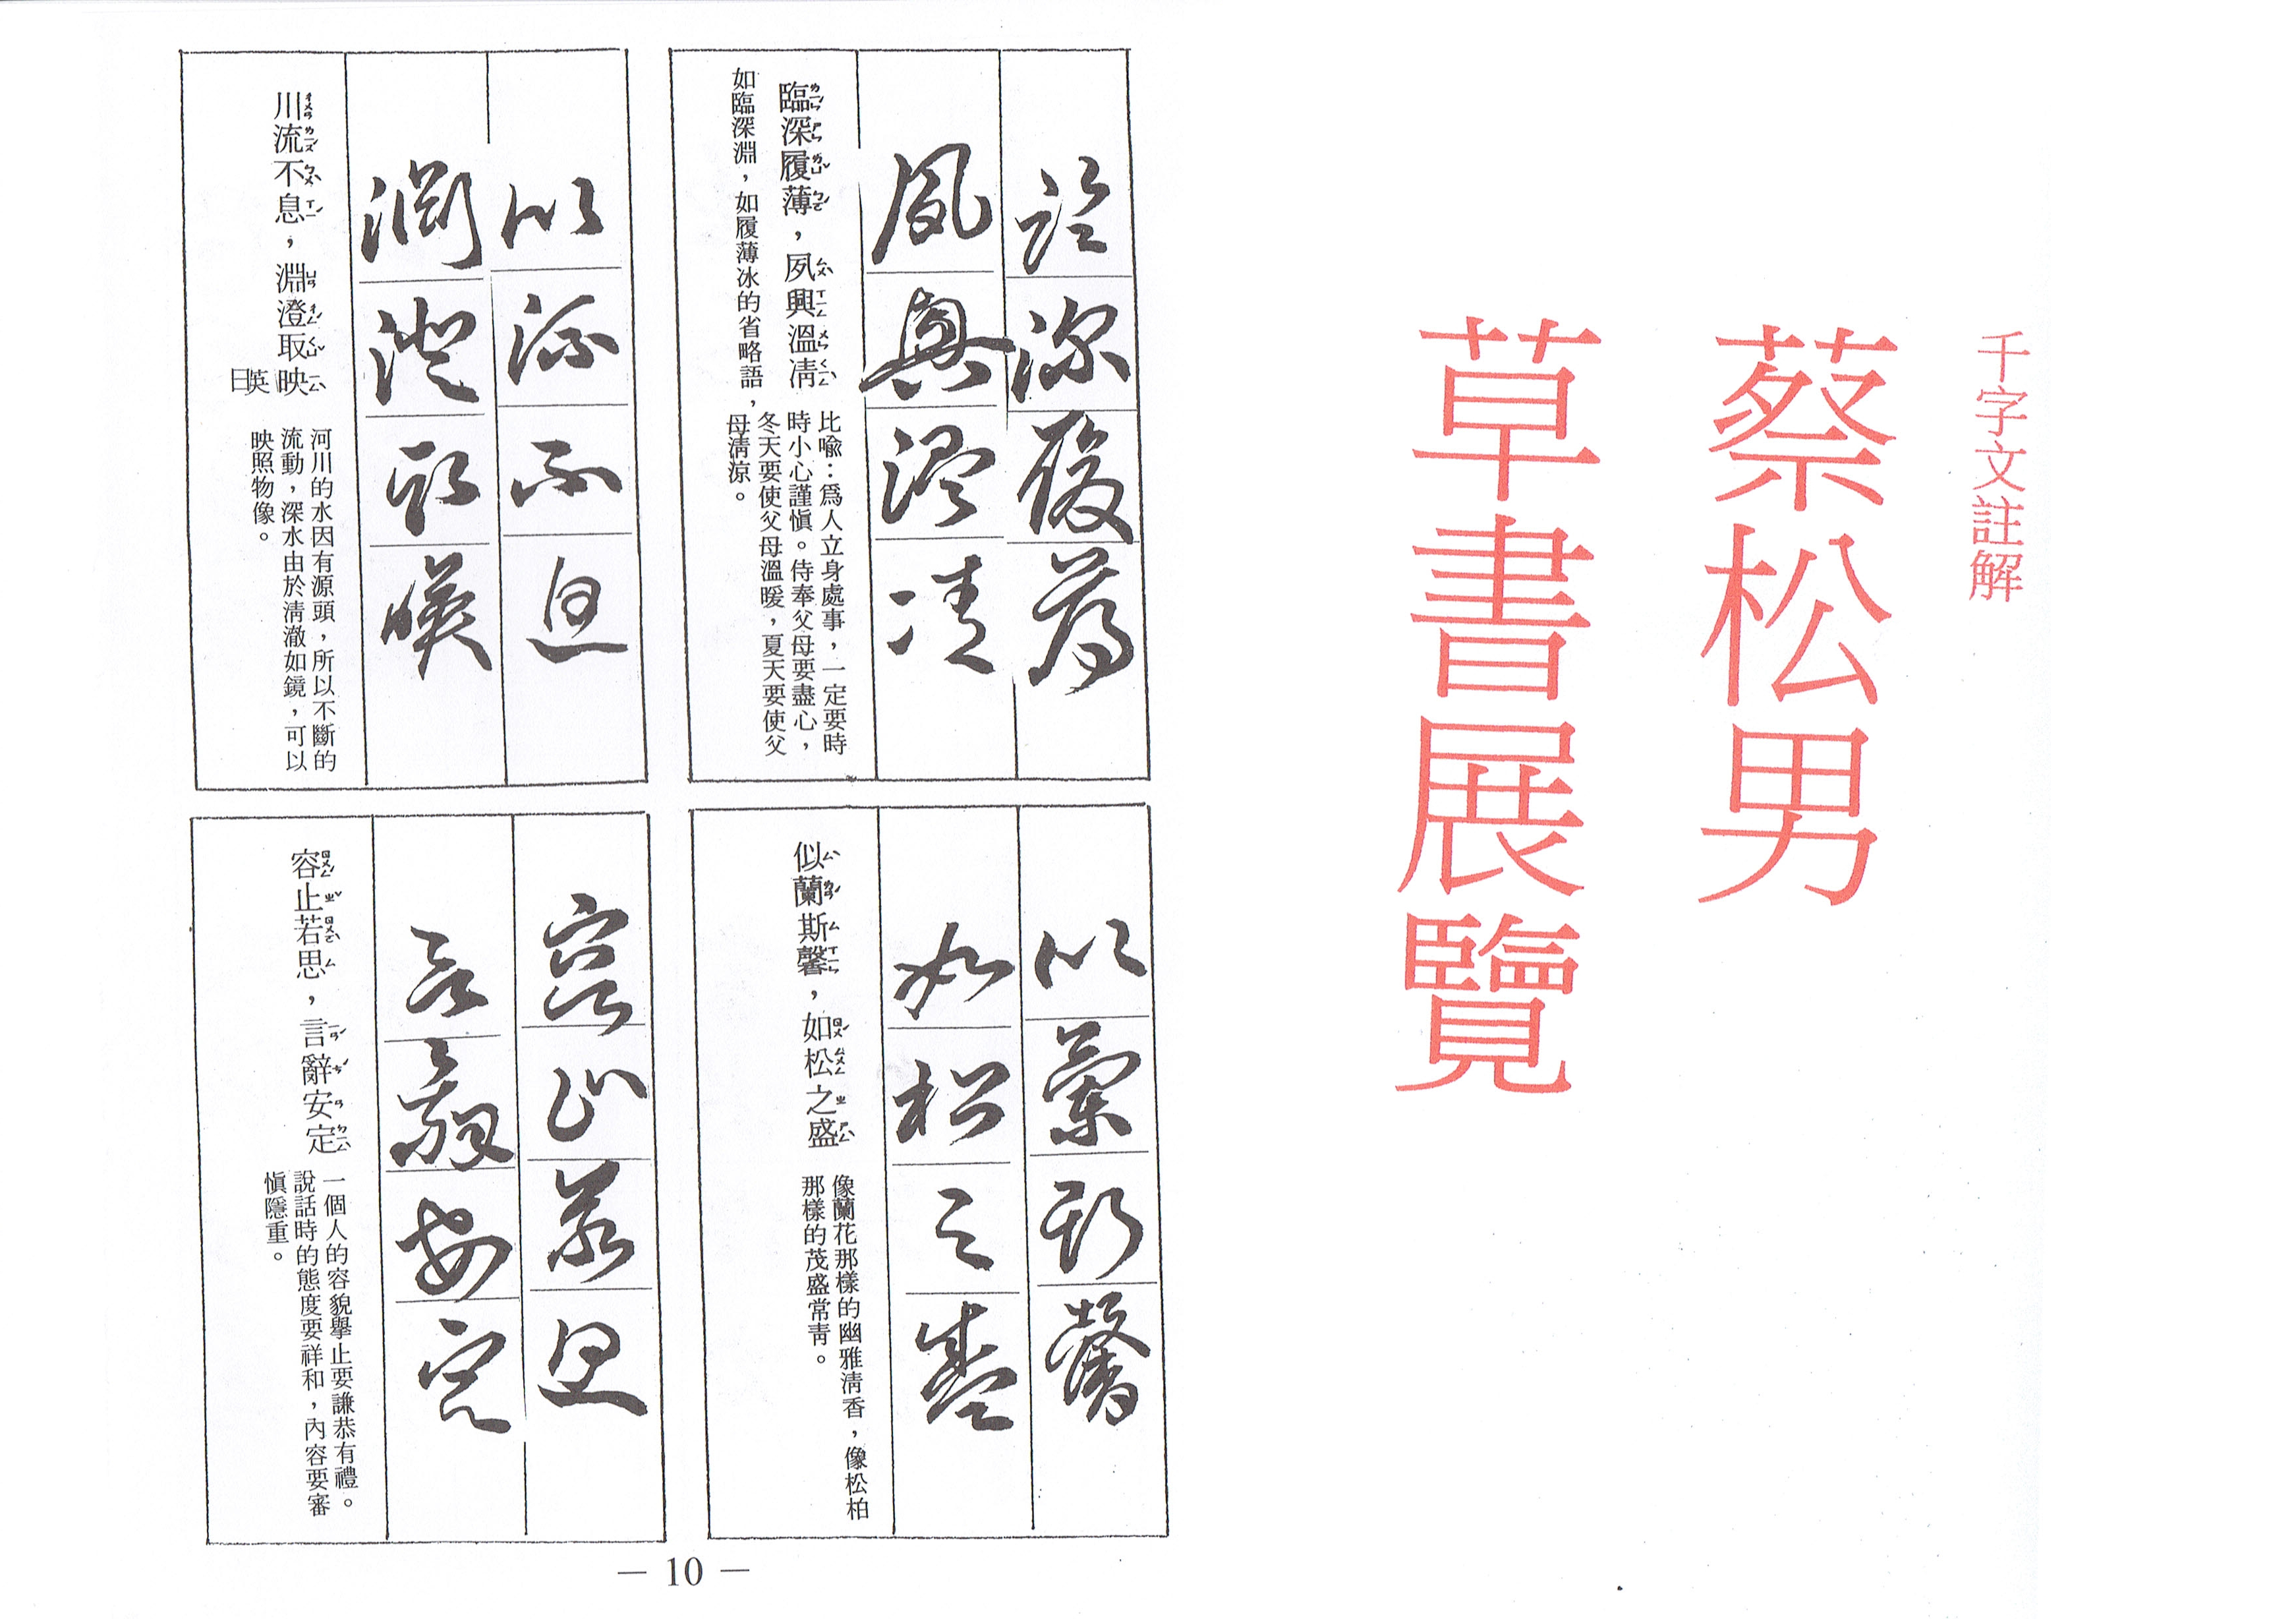 千字文註解
蔡松男
草書展覽
臨深履薄
夙興溫凊
臨深履薄，夙興溫凊
比喻：爲人立身處事，一定要時
時小心謹愼。侍奉父母要盡心，
冬天要使父母溫暖，夏天要使父
母淸涼。
如臨深淵，如履薄冰的省略語，
似蘭斯馨
如松之盛
似蘭斯馨，如松之盛
像蘭花那樣的幽雅淸香，像松柏
那樣的茂盛常靑。
川流不息
淵澄取映
川流不息，淵澄取映
日英
河川的水因有源頭，所以不斷的
流動，深水由於淸澈如鏡，可以
映照物像。
容止若思
言辭安定
容止若思，言辭安定
一個人的容貌擧止要謙恭有禮。
說話時的態度要祥和，內容要審
愼隱重。
— 10 —